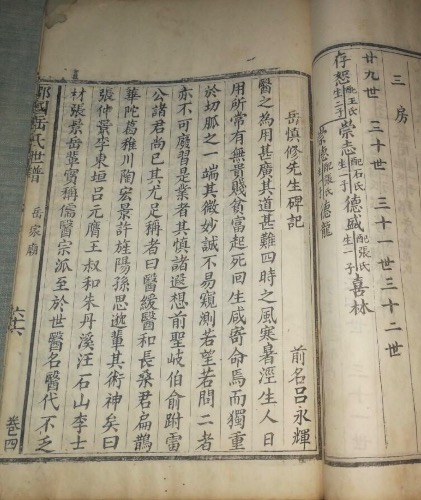 三房
廿九世 三十世 三十一世 三十二世
存恕配王氏生二子 崇志配石氏生一子 德盛配張氏生一子 喜林
崇德配張氏生一子 德龍
岳慎修先生碑記
前名呂永輝
醫之為用甚廣其道甚難四時之風寒暑溼生人日
用所常有無貴賤貧富起死回生咸寄命焉而獨重
於切脈之一端其微妙誠不易窺測若望若問二者
亦不可廢習是業者其慎諸遐想前聖岐伯俞跗雷
公諸君尚已其尤足稱者曰醫緩醫和長桑君扁鵲
華陀葛稚川陶宏景許旌陽孫思邈輩其術神矣曰
張仲景李東垣呂元膺王叔和朱丹溪汪石山李士
材張景岳輩實稱儒醫宗派至於世醫名醫代不乏
岳氏世譜
岳家廟
卷四